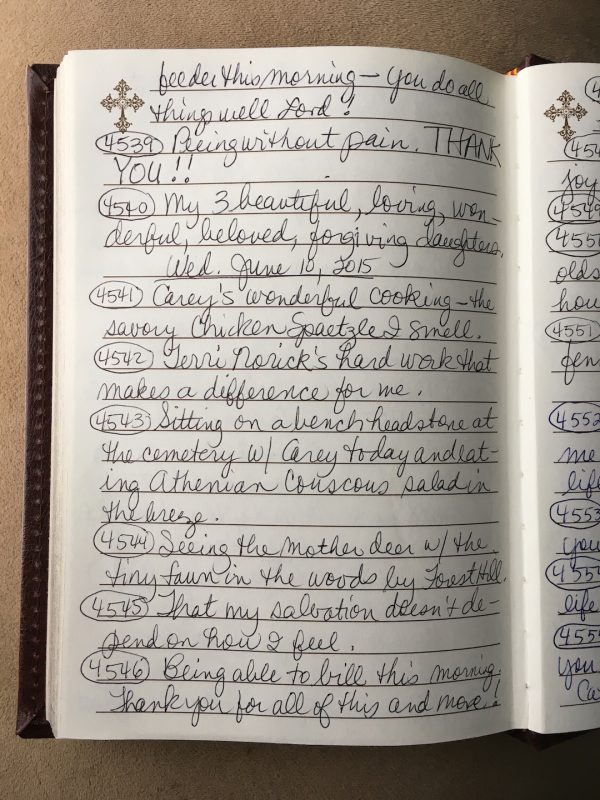 feeder this morning — You do all
things well Lord!
4539 Peeing without pain. THANK
YOU!!
4540 My 3 beautiful, loving, won-
derful, beloved, forgiving daughters.
Wed. June 10, 2015
4541 Carey's wonderful cooking — the
savory Chicken Spaetzle I smell.
4542 Terri Norick's hard work that
makes a difference for me.
4543 Sitting on a bench headstone at
the cemetery w/ Carey today and eat-
ing Athenian Couscous salad in
the breeze.
4544 Seeing the mother deer w/ the
tiny fawn in the woods by Forest Hill.
4545 That my salvation doesn't de-
pend on how I feel.
4546 Being able to bill this morning.
Thank you for all of this and more!
joy
4549
4550
olds
hou
4551
fen
4552
me
life
4553
you
4554
life
4555
you
Ca